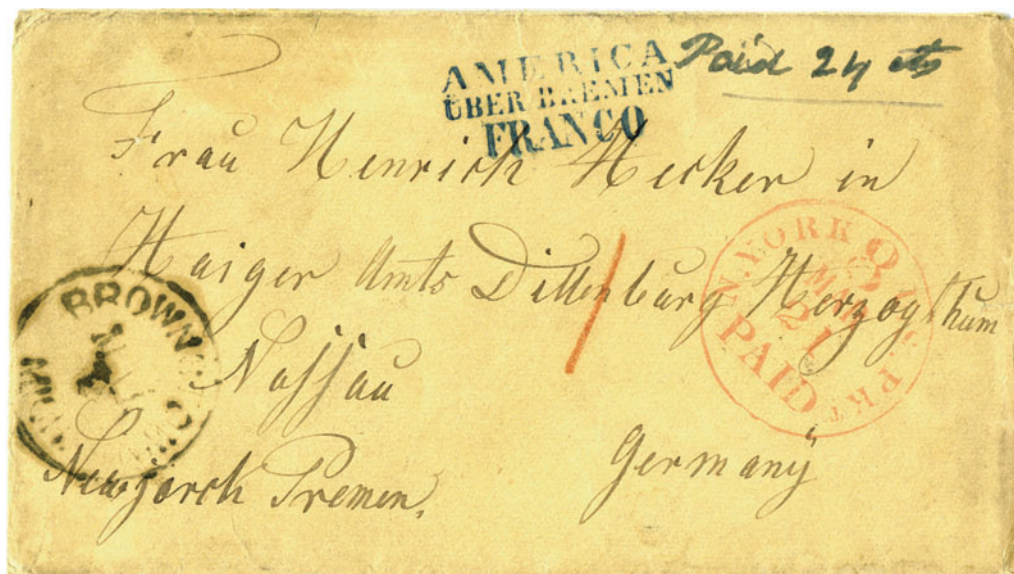 AMERICA
ÜBER BREMEN
FRANCO
Paid 24 cts
Frau Henrich Hecker in
Haiger Amts Dillenburg Herzogthum
Nassau
Germany
Newjorck Premen.
N. YORK U.S. PKT
MAR
21
PAID
BROWN